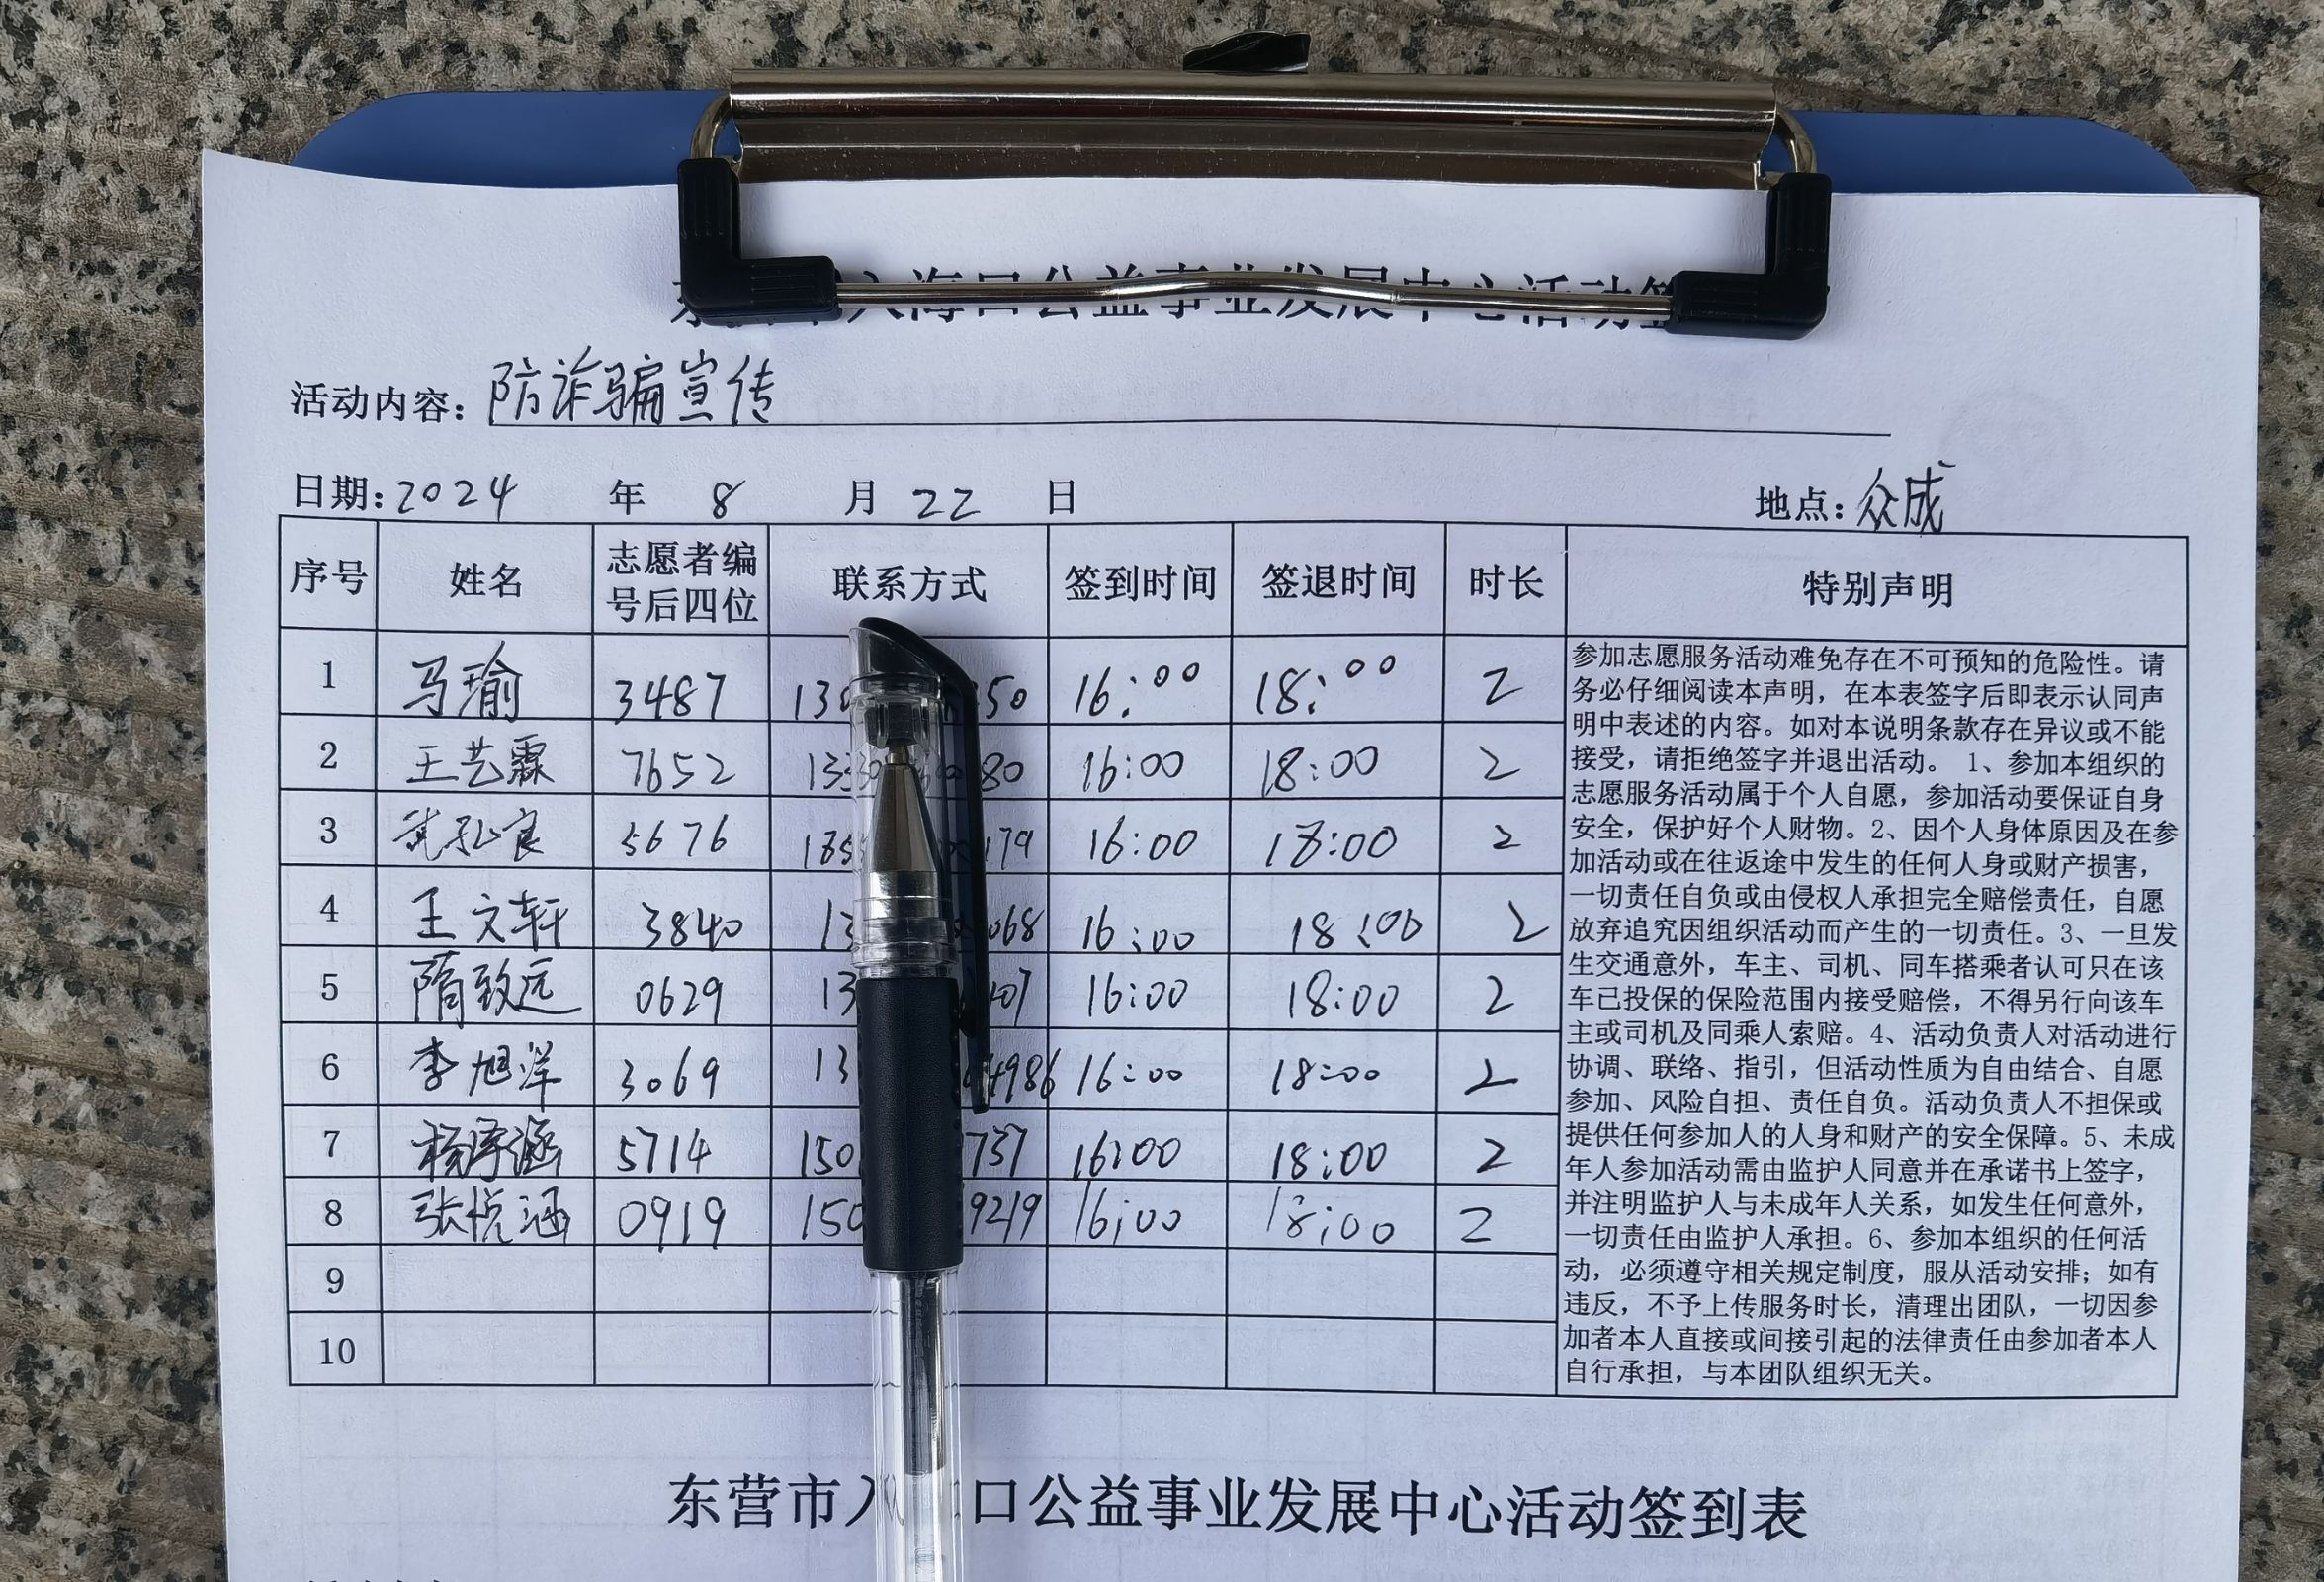 入海口公益事业发展中心活动签
活动内容：防诈骗宣传
日期：2024 年 8 月 22 日 地点：众成
序号 姓名 志愿者编号后四位 联系方式 签到时间 签退时间 时长 特别声明
1 马瑜 3487 13 50 16:00 18:00 2
2 王艺霖 7652 133 80 16:00 18:00 2
3 5676 185 179 16:00 18:00 2
4 王文轩 3840 13 068 16:00 18:00 2
5 隋致远 0629 13 07 16:00 18:00 2
6 李旭洋 3069 13 4986 16:00 18:00 2
7 杨淳涵 5714 150 737 16:00 18:00 2
8 张悦涵 0919 150 9219 16:00 18:00 2
9
10
参加志愿服务活动难免存在不可预知的危险性。请
务必仔细阅读本声明，在本表签字后即表示认同声
明中表述的内容。如对本说明条款存在异议或不能
接受，请拒绝签字并退出活动。 1、参加本组织的
志愿服务活动属于个人自愿，参加活动要保证自身
安全，保护好个人财物。2、因个人身体原因及在参
加活动或在往返途中发生的任何人身或财产损害，
一切责任自负或由侵权人承担完全赔偿责任，自愿
放弃追究因组织活动而产生的一切责任。3、一旦发
生交通意外，车主、司机、同车搭乘者认可只在该
车已投保的保险范围内接受赔偿，不得另行向该车
主或司机及同乘人索赔。4、活动负责人对活动进行
协调、联络、指引，但活动性质为自由结合、自愿
参加、风险自担、责任自负。活动负责人不担保或
提供任何参加人的人身和财产的安全保障。5、未成
年人参加活动需由监护人同意并在承诺书上签字，
并注明监护人与未成年人关系，如发生任何意外，
一切责任由监护人承担。6、参加本组织的任何活
动，必须遵守相关规定制度，服从活动安排；如有
违反，不予上传服务时长，清理出团队，一切因参
加者本人直接或间接引起的法律责任由参加者本人
自行承担，与本团队组织无关。
东营市入 口公益事业发展中心活动签到表